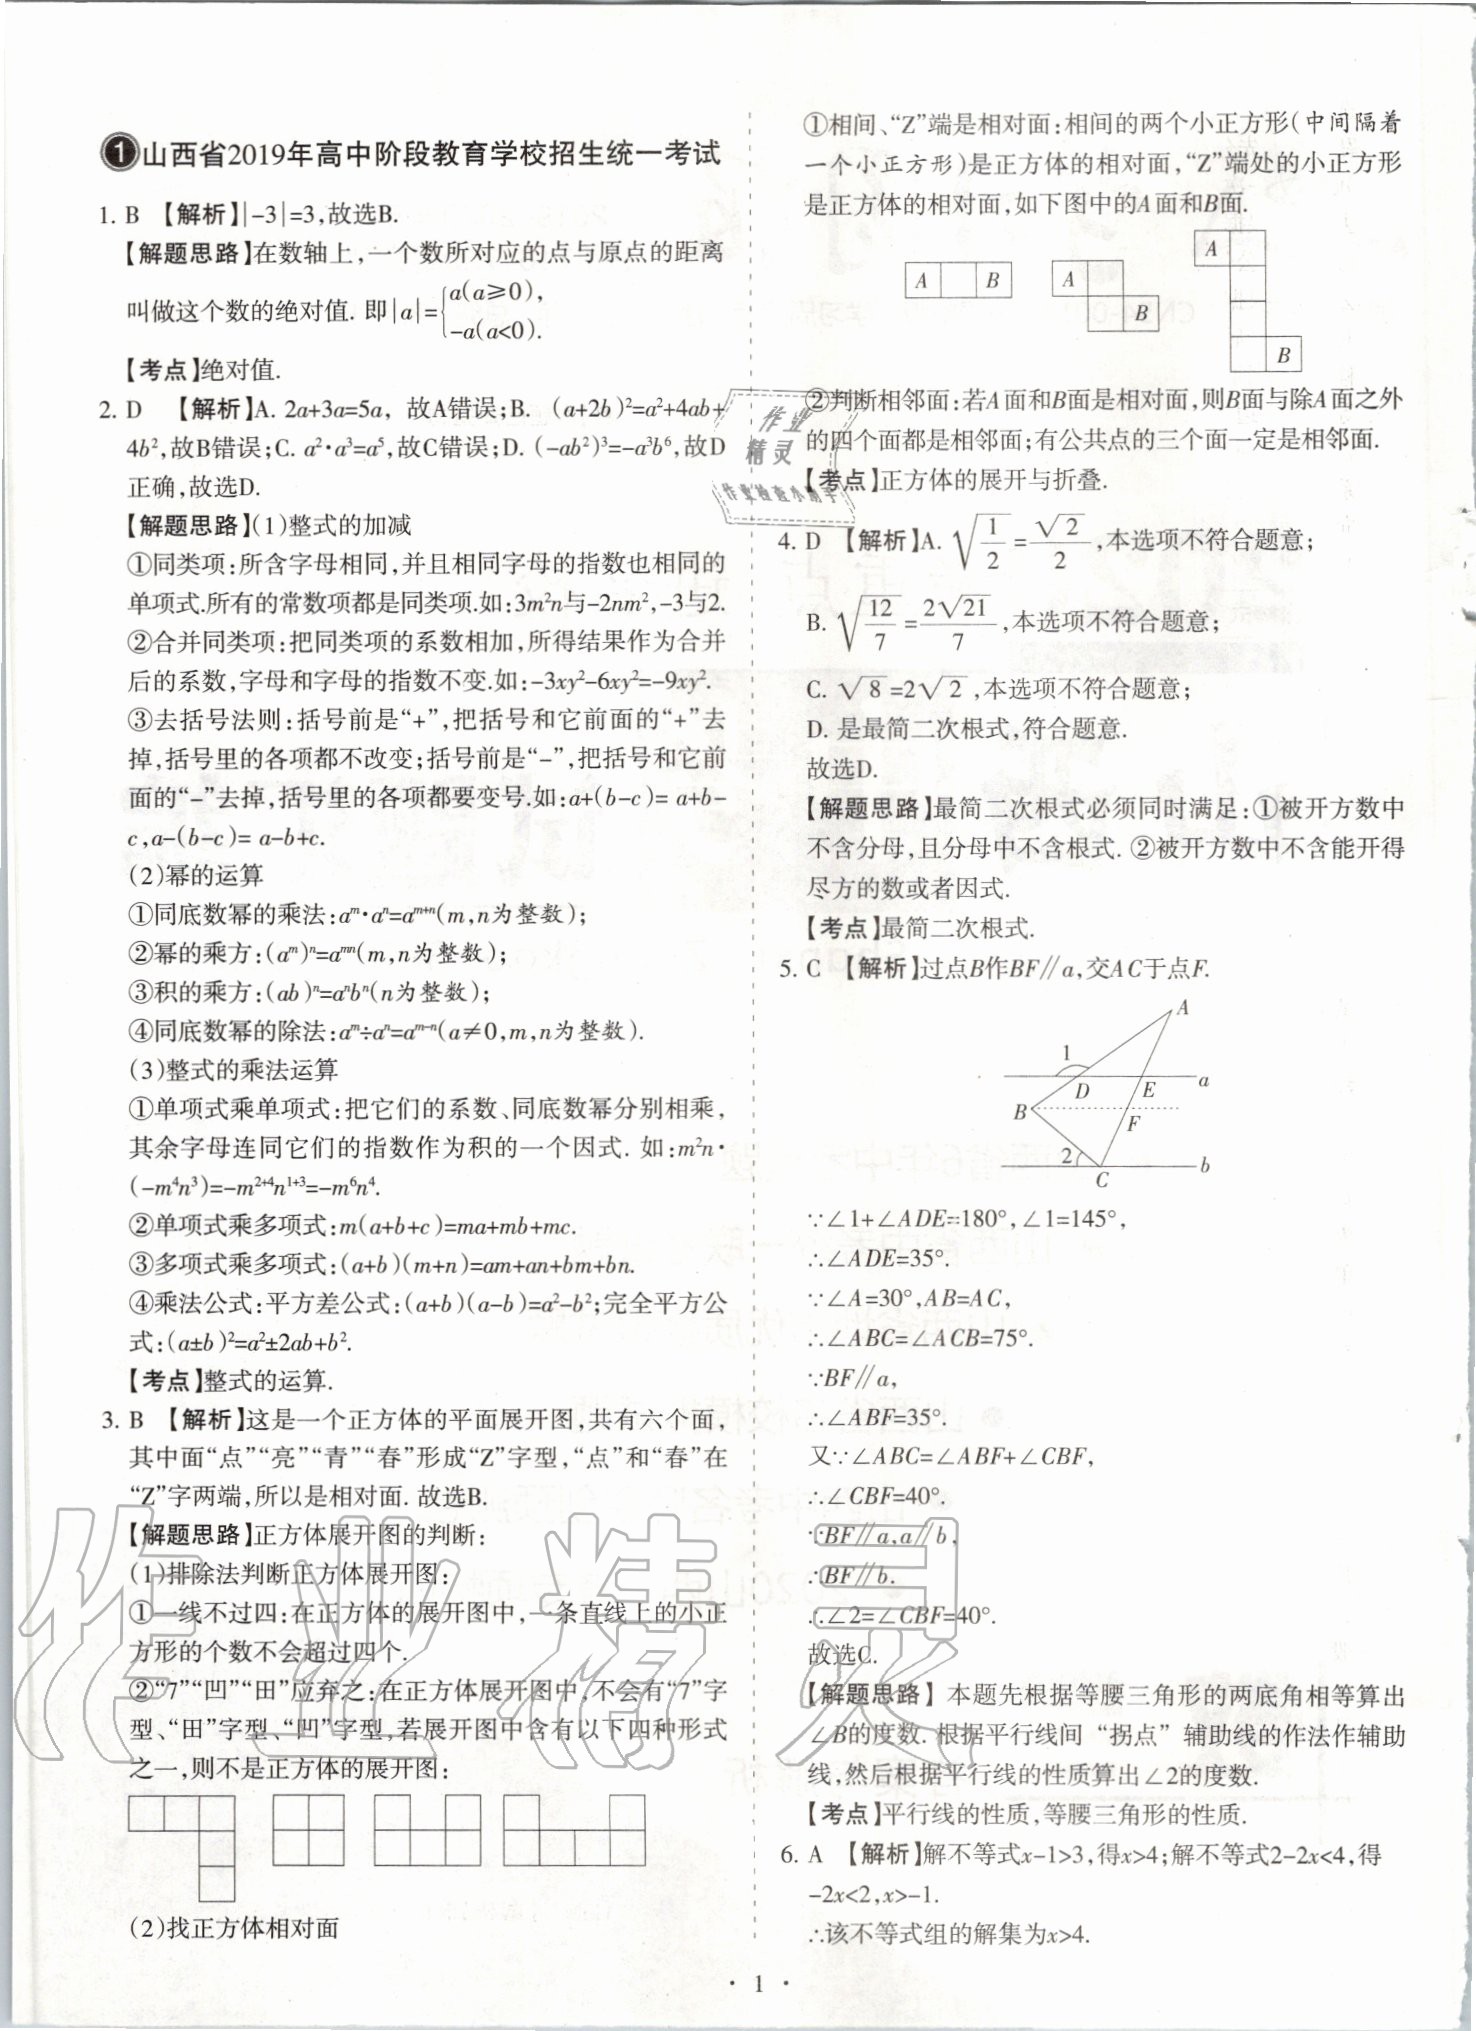 1 山西省2019年高中阶段教育学校招生统一考试
1. B 【解析】|-3|=3,故选B.
【解题思路】在数轴上,一个数所对应的点与原点的距离
叫做这个数的绝对值. 即|a|={a(a≥0), -a(a<0).
【考点】绝对值.
2. D 【解析】A. 2a+3a=5a, 故A错误;B. (a+2b)²=a²+4ab+
4b²,故B错误;C. a²·a³=a⁵,故C错误;D. (-ab²)³=-a³b⁶,故D
正确,故选D.
【解题思路】(1)整式的加减
①同类项:所含字母相同,并且相同字母的指数也相同的
单项式.所有的常数项都是同类项.如:3m²n与-2nm²,-3与2.
②合并同类项:把同类项的系数相加,所得结果作为合并
后的系数,字母和字母的指数不变.如:-3xy²-6xy²=-9xy².
③去括号法则:括号前是“+”,把括号和它前面的“+”去
掉,括号里的各项都不改变;括号前是“-”,把括号和它前
面的“-”去掉,括号里的各项都要变号.如:a+(b-c)= a+b-
c,a-(b-c)= a-b+c.
(2)幂的运算
①同底数幂的乘法:aᵐ·aⁿ=aᵐ⁺ⁿ(m,n为整数);
②幂的乘方:(aᵐ)ⁿ=aᵐⁿ(m,n为整数);
③积的乘方:(ab)ⁿ=aⁿbⁿ(n为整数);
④同底数幂的除法:aᵐ÷aⁿ=aᵐ⁻ⁿ(a≠0,m,n为整数).
(3)整式的乘法运算
①单项式乘单项式:把它们的系数、同底数幂分别相乘,
其余字母连同它们的指数作为积的一个因式. 如:m²n·
(-m⁴n³)=-m²⁺⁴n¹⁺³=-m⁶n⁴.
②单项式乘多项式:m(a+b+c)=ma+mb+mc.
③多项式乘多项式:(a+b)(m+n)=am+an+bm+bn.
④乘法公式:平方差公式:(a+b)(a-b)=a²-b²;完全平方公
式:(a±b)²=a²±2ab+b².
【考点】整式的运算.
3. B 【解析】这是一个正方体的平面展开图,共有六个面,
其中面“点”“亮”“青”“春”形成“Z”字型,“点”和“春”在
“Z”字两端,所以是相对面. 故选B.
【解题思路】正方体展开图的判断:
(1)排除法判断正方体展开图:
①一线不过四:在正方体的展开图中,一条直线上的小正
方形的个数不会超过四个.
②“7”“凹”“田”应弃之:在正方体展开图中,不会有“7”字
型、“田”字型、“凹”字型,若展开图中含有以下四种形式
之一,则不是正方体的展开图:
(2)找正方体相对面
①相间、“Z”端是相对面:相间的两个小正方形(中间隔着
一个小正方形)是正方体的相对面,“Z”端处的小正方形
是正方体的相对面,如下图中的A面和B面.
A B
A B
A B
②判断相邻面:若A面和B面是相对面,则B面与除A面之外
的四个面都是相邻面;有公共点的三个面一定是相邻面.
【考点】正方体的展开与折叠.
4. D 【解析】A. √(1/2)=√2/2,本选项不符合题意;
B. √(12/7)=2√21/7,本选项不符合题意;
C. √8=2√2,本选项不符合题意;
D. 是最简二次根式,符合题意.
故选D.
【解题思路】最简二次根式必须同时满足:①被开方数中
不含分母,且分母中不含根式. ②被开方数中不含能开得
尽方的数或者因式.
【考点】最简二次根式.
5. C 【解析】过点B作BF∥a,交AC于点F.
A
1
D E a
B
F
2
C b
∵∠1+∠ADE=180°,∠1=145°,
∴∠ADE=35°.
∵∠A=30°,AB=AC,
∴∠ABC=∠ACB=75°.
∵BF∥a,
∴∠ABF=35°.
又∵∠ABC=∠ABF+∠CBF,
∴∠CBF=40°.
∵BF∥a,a∥b,
∴BF∥b.
∴∠2=∠CBF=40°.
故选C.
【解题思路】 本题先根据等腰三角形的两底角相等算出
∠B的度数. 根据平行线间“拐点”辅助线的作法作辅助
线,然后根据平行线的性质算出∠2的度数.
【考点】平行线的性质,等腰三角形的性质.
6. A 【解析】解不等式x-1>3,得x>4;解不等式2-2x<4,得
-2x<2,x>-1.
∴该不等式组的解集为x>4.
· 1 ·
作业
精灵
作业检查小助手
作业精灵